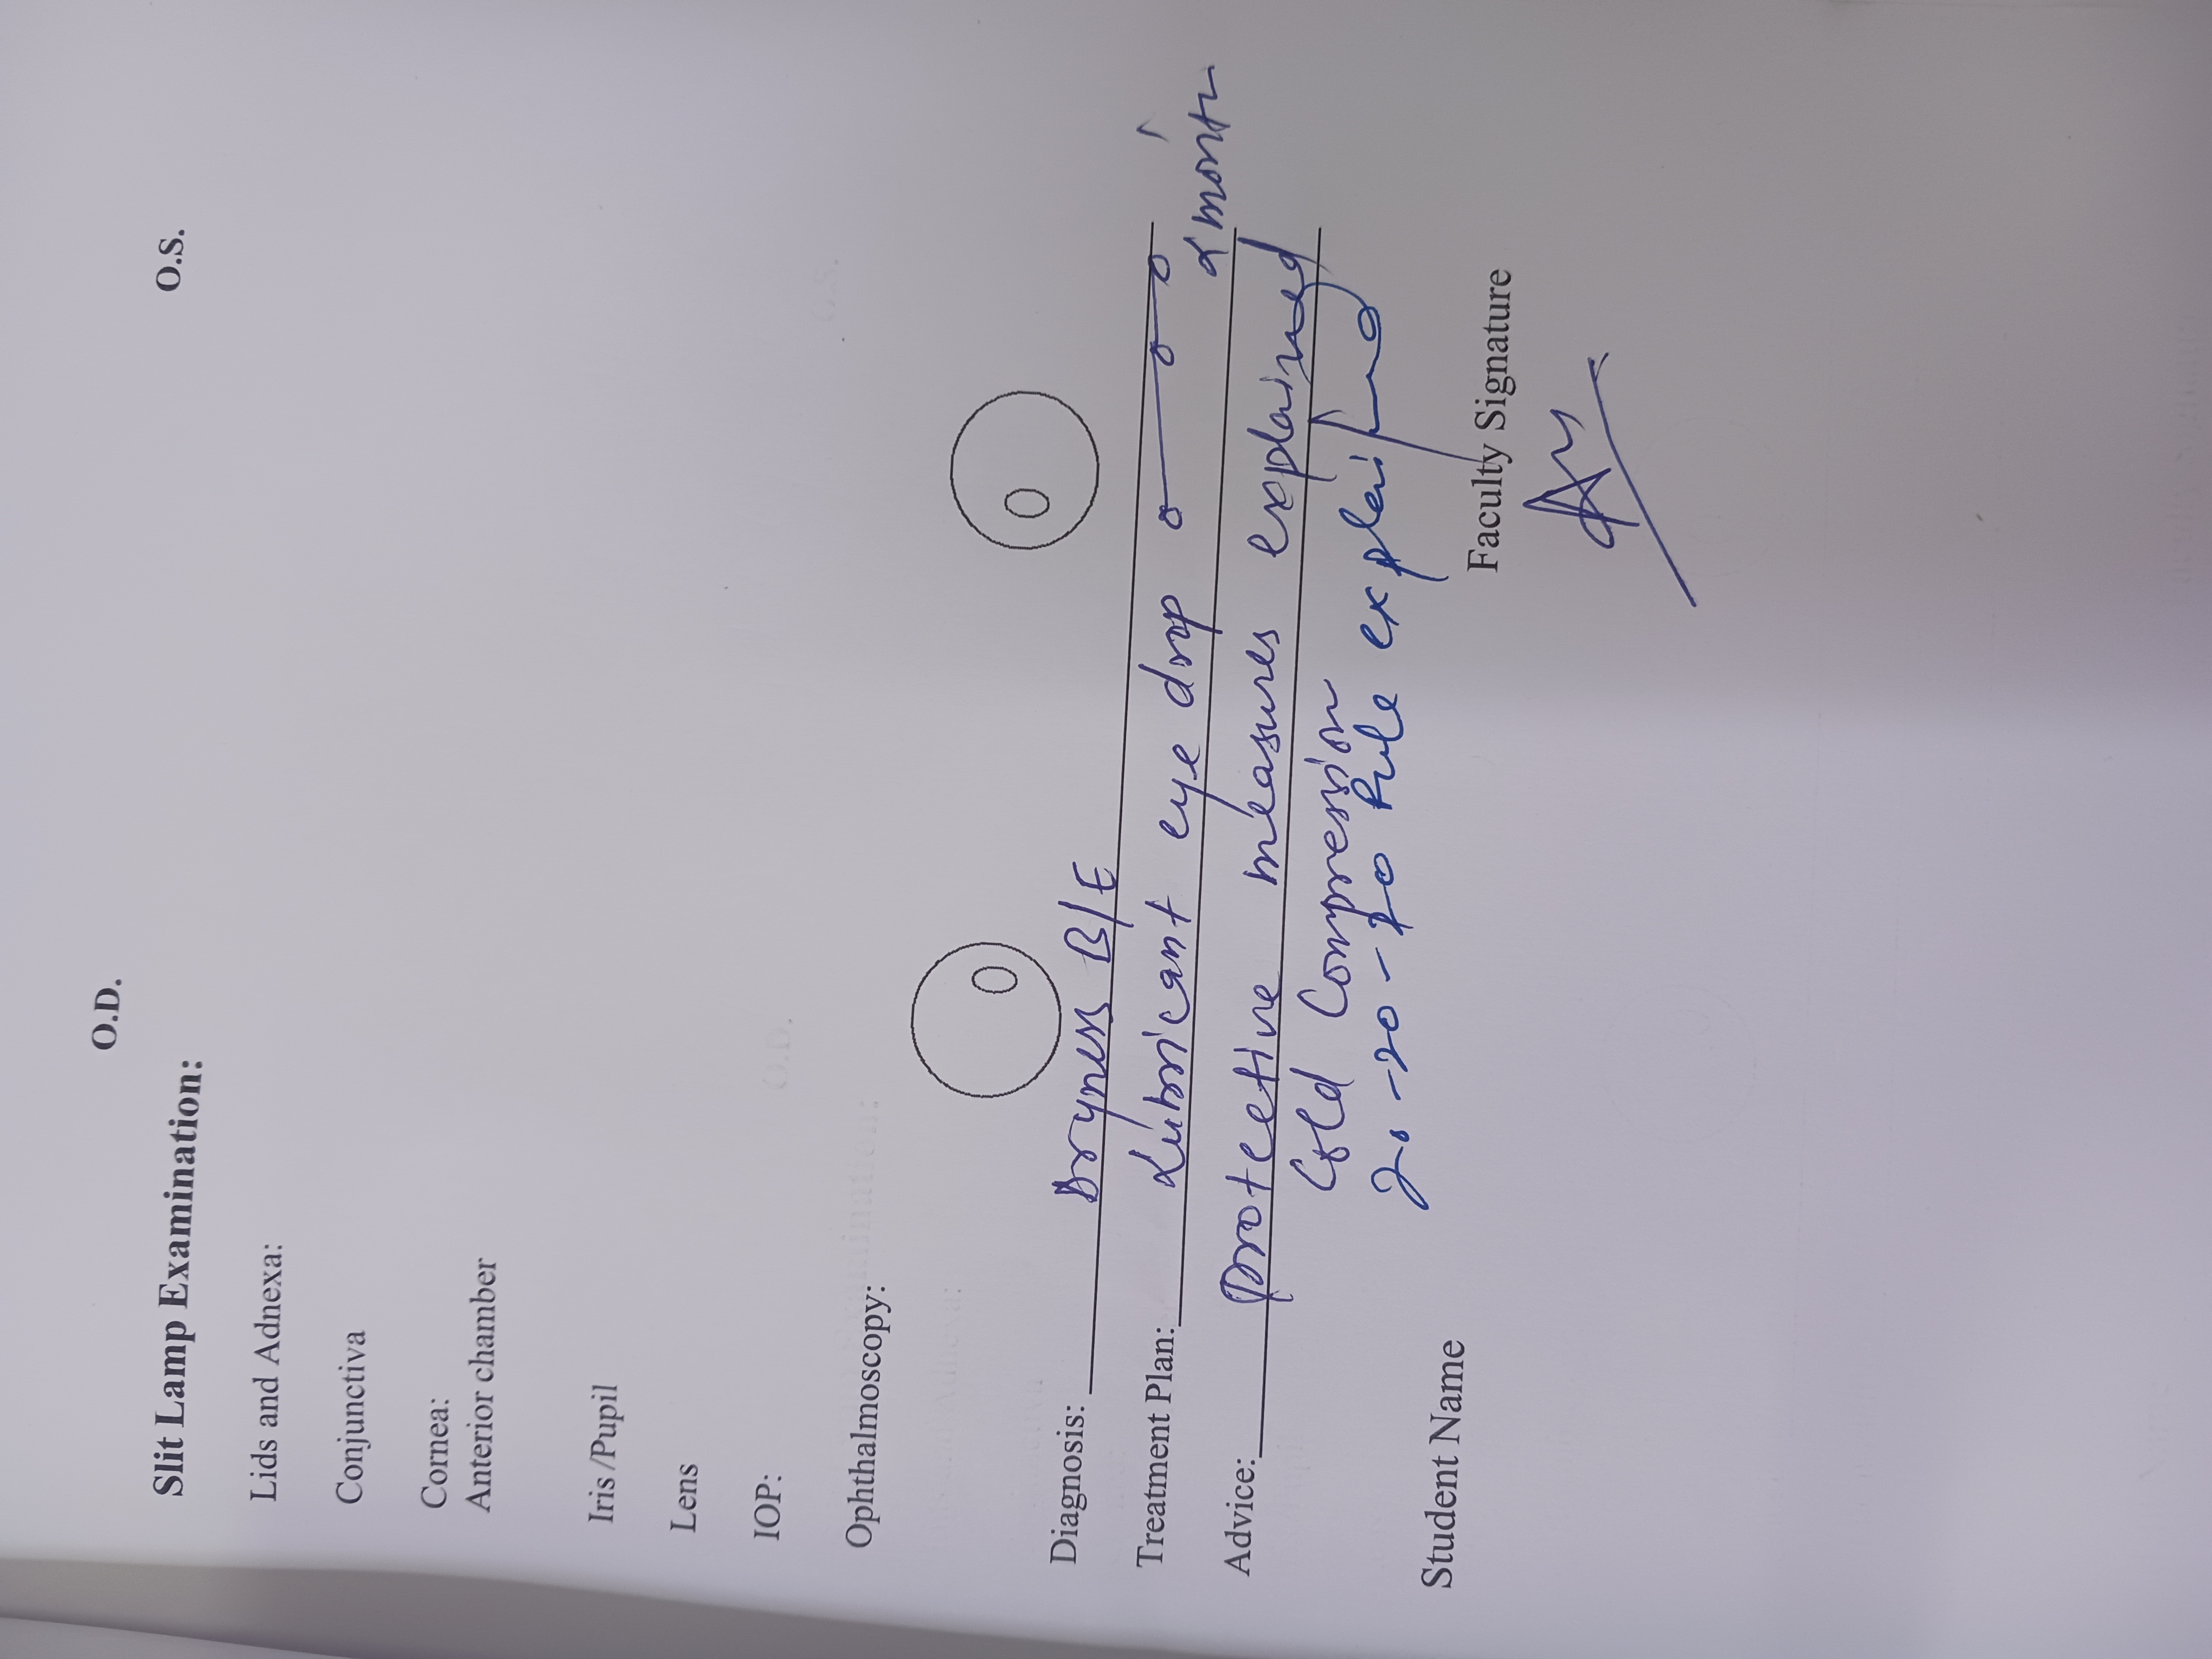 O.D. O.S.
Slit Lamp Examination:
Lids and Adnexa:
Conjunctiva
Cornea:
Anterior chamber
Iris /Pupil
Lens
IOP:
Ophthalmoscopy:
Diagnosis: Dryness B/E
Treatment Plan: Lubricant eye drop
month
Advice: protective measures explained
Cold Compression
20-20-20 Rule explained
Student Name
Faculty Signature